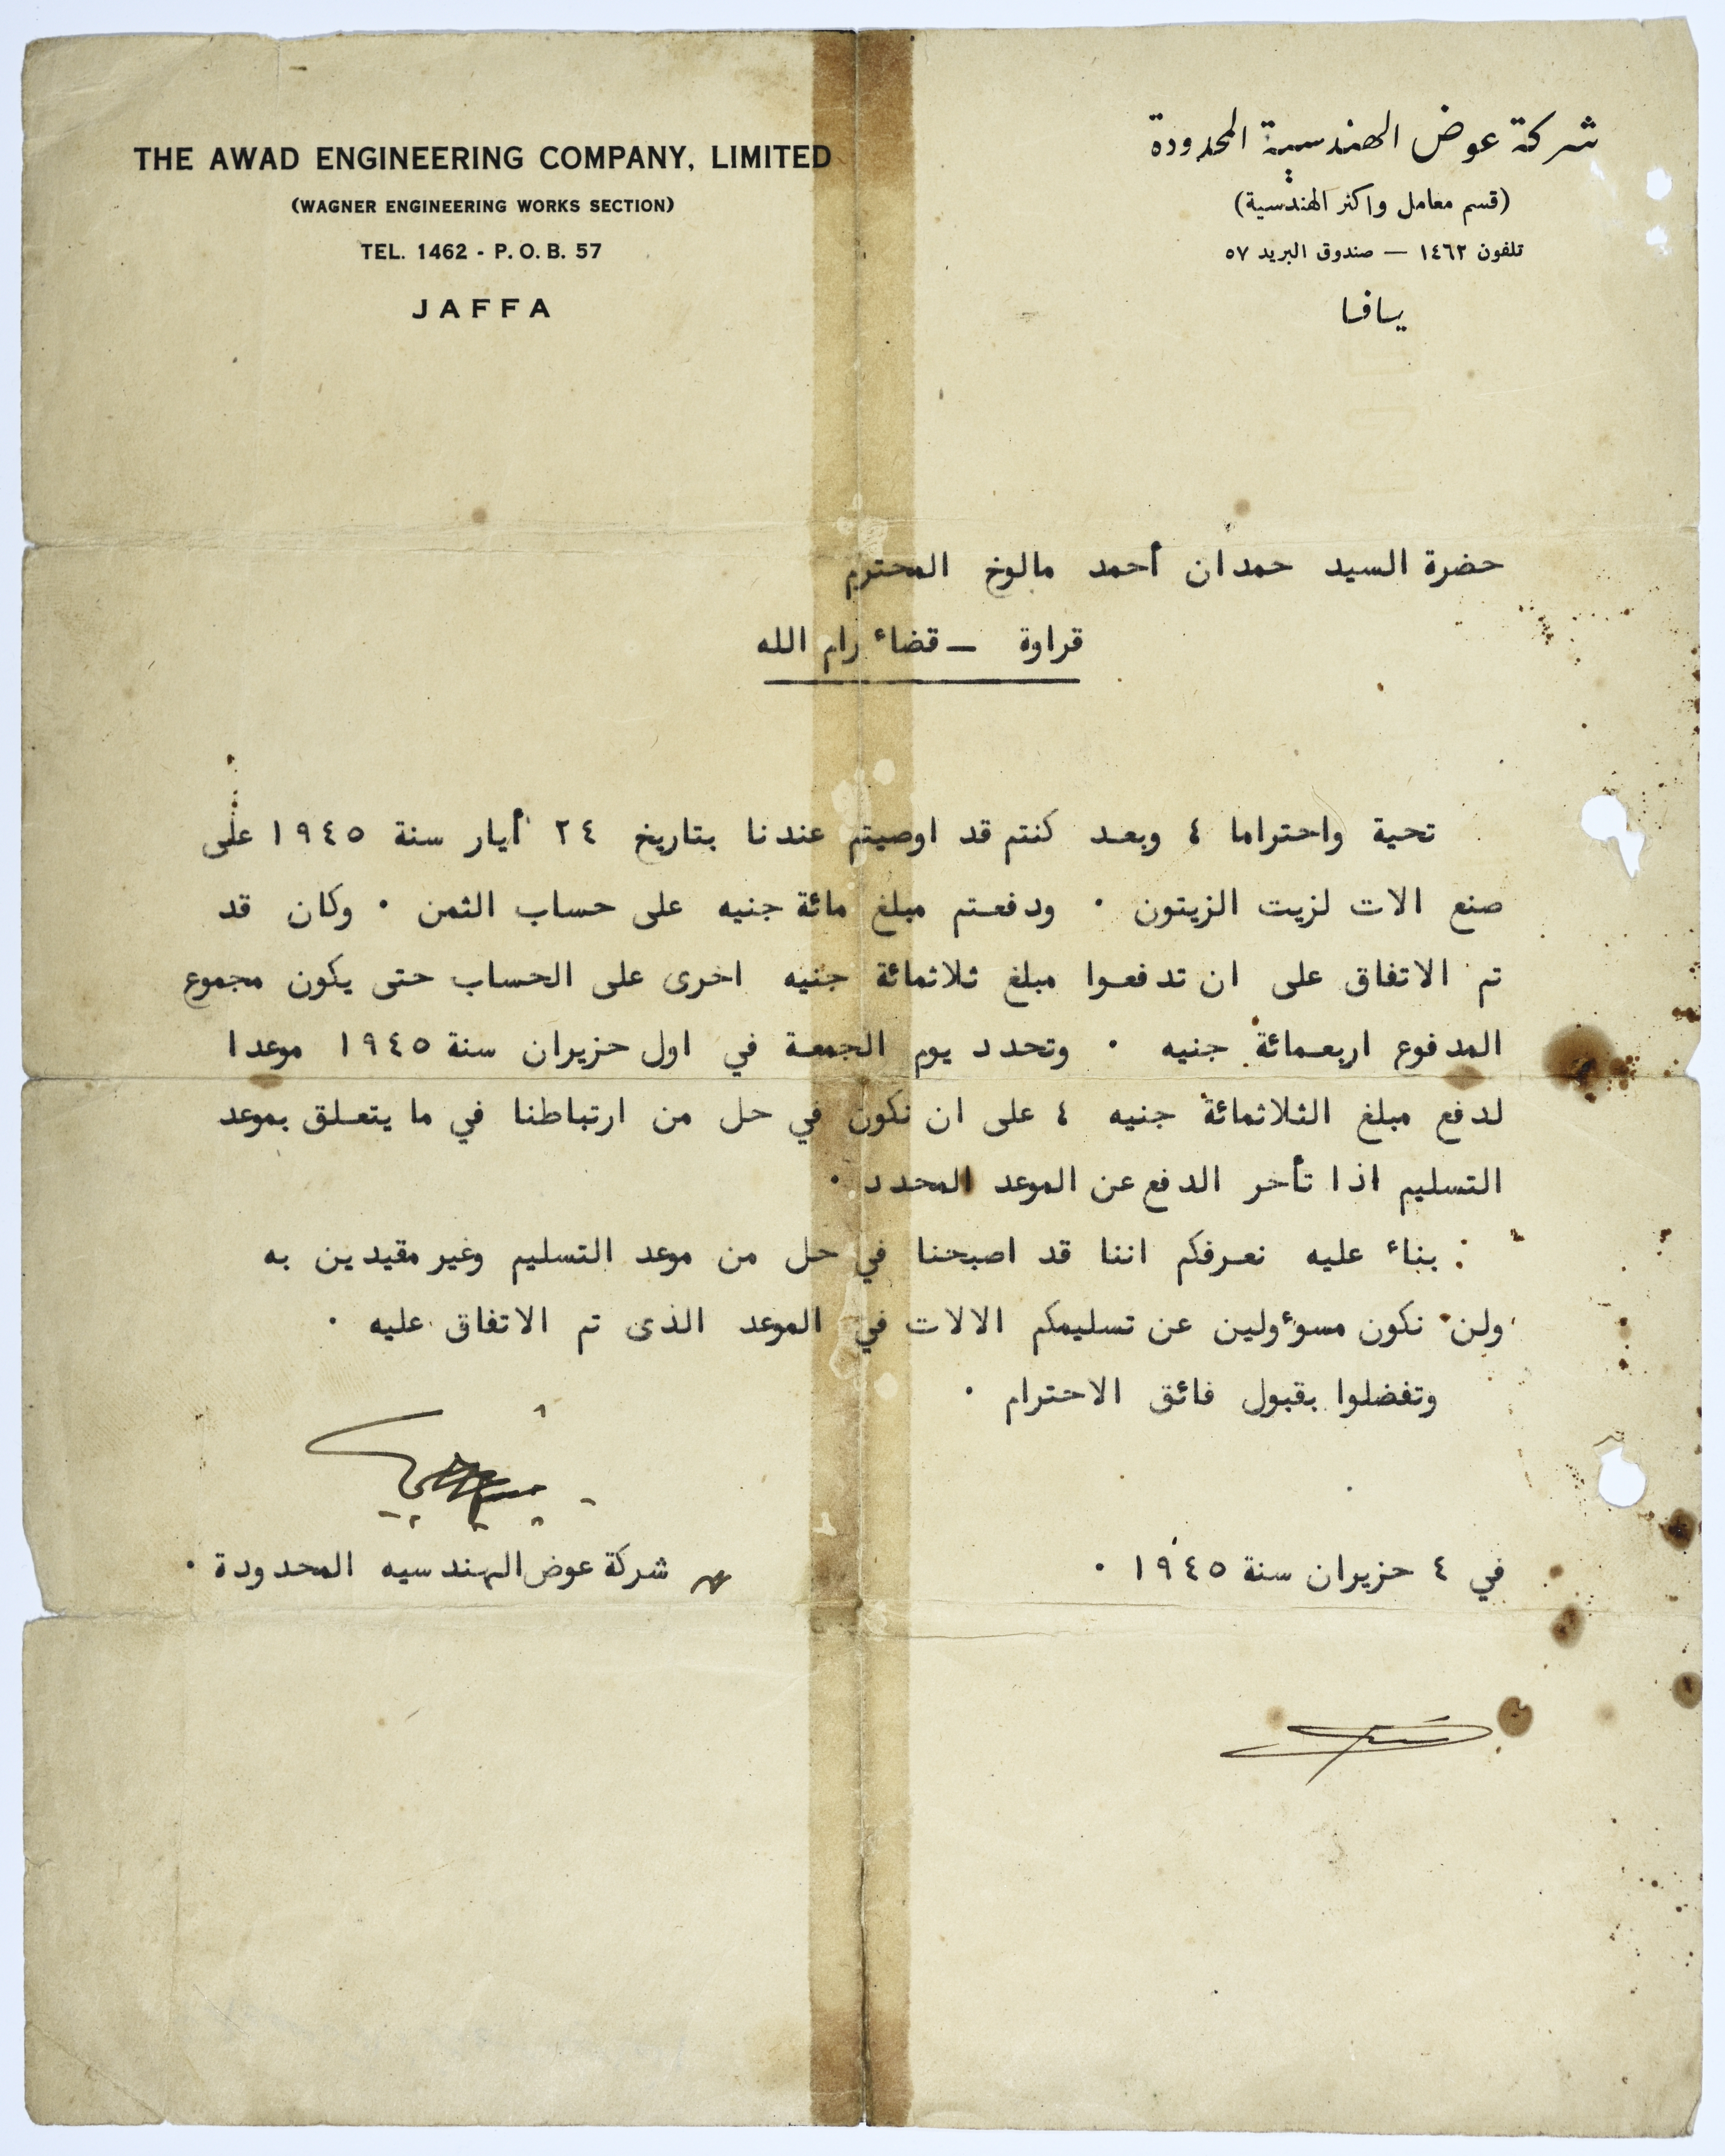 THE AWAD ENGINEERING COMPANY, LIMITED
(WAGNER ENGINEERING WORKS SECTION)
TEL. 1462 - P. O. B. 57
JAFFA
شركة عوض الهندسية المحدودة
(قسم معامل واكنر الهندسية)
تلفون ١٤٦٢ — صندوق البريد ٥٧
يافا
حضرة السيد حمدان أحمد مالوخ المحترم
قراوة – قضاء رام الله
تحية واحتراما ٤ وبعد كنتم قد اوصيتم عندنا بتاريخ ٢٤ أيار سنة ١٩٤٥ على
صنع الات لزيت الزيتون ٠ ودفعتم مبلغ مائة جنيه على حساب الثمن ٠ وكان قد
تم الاتفاق على ان تدفعوا مبلغ ثلاثمائة جنيه اخرى على الحساب حتى يكون مجموع
المدفوع اربعمائة جنيه ٠ وتحدد يوم الجمعة في اول حزيران سنة ١٩٤٥ موعدا
لدفع مبلغ الثلاثمائة جنيه ٤ على ان نكون في حل من ارتباطنا في ما يتعلق بموعد
التسليم اذا تأخر الدفع عن الموعد المحدد ٠
بناء عليه نعرفكم اننا قد اصبحنا في حل من موعد التسليم وغير مقيدين به
ولن نكون مسوءولين عن تسليمكم الالات في الموعد الذى تم الاتفاق عليه ٠
وتفضلوا بقبول فائق الاحترام ٠
في ٤ حزيران سنة ١٩٤٥ ٠
شركة عوض الهندسيه المحدودة ٠